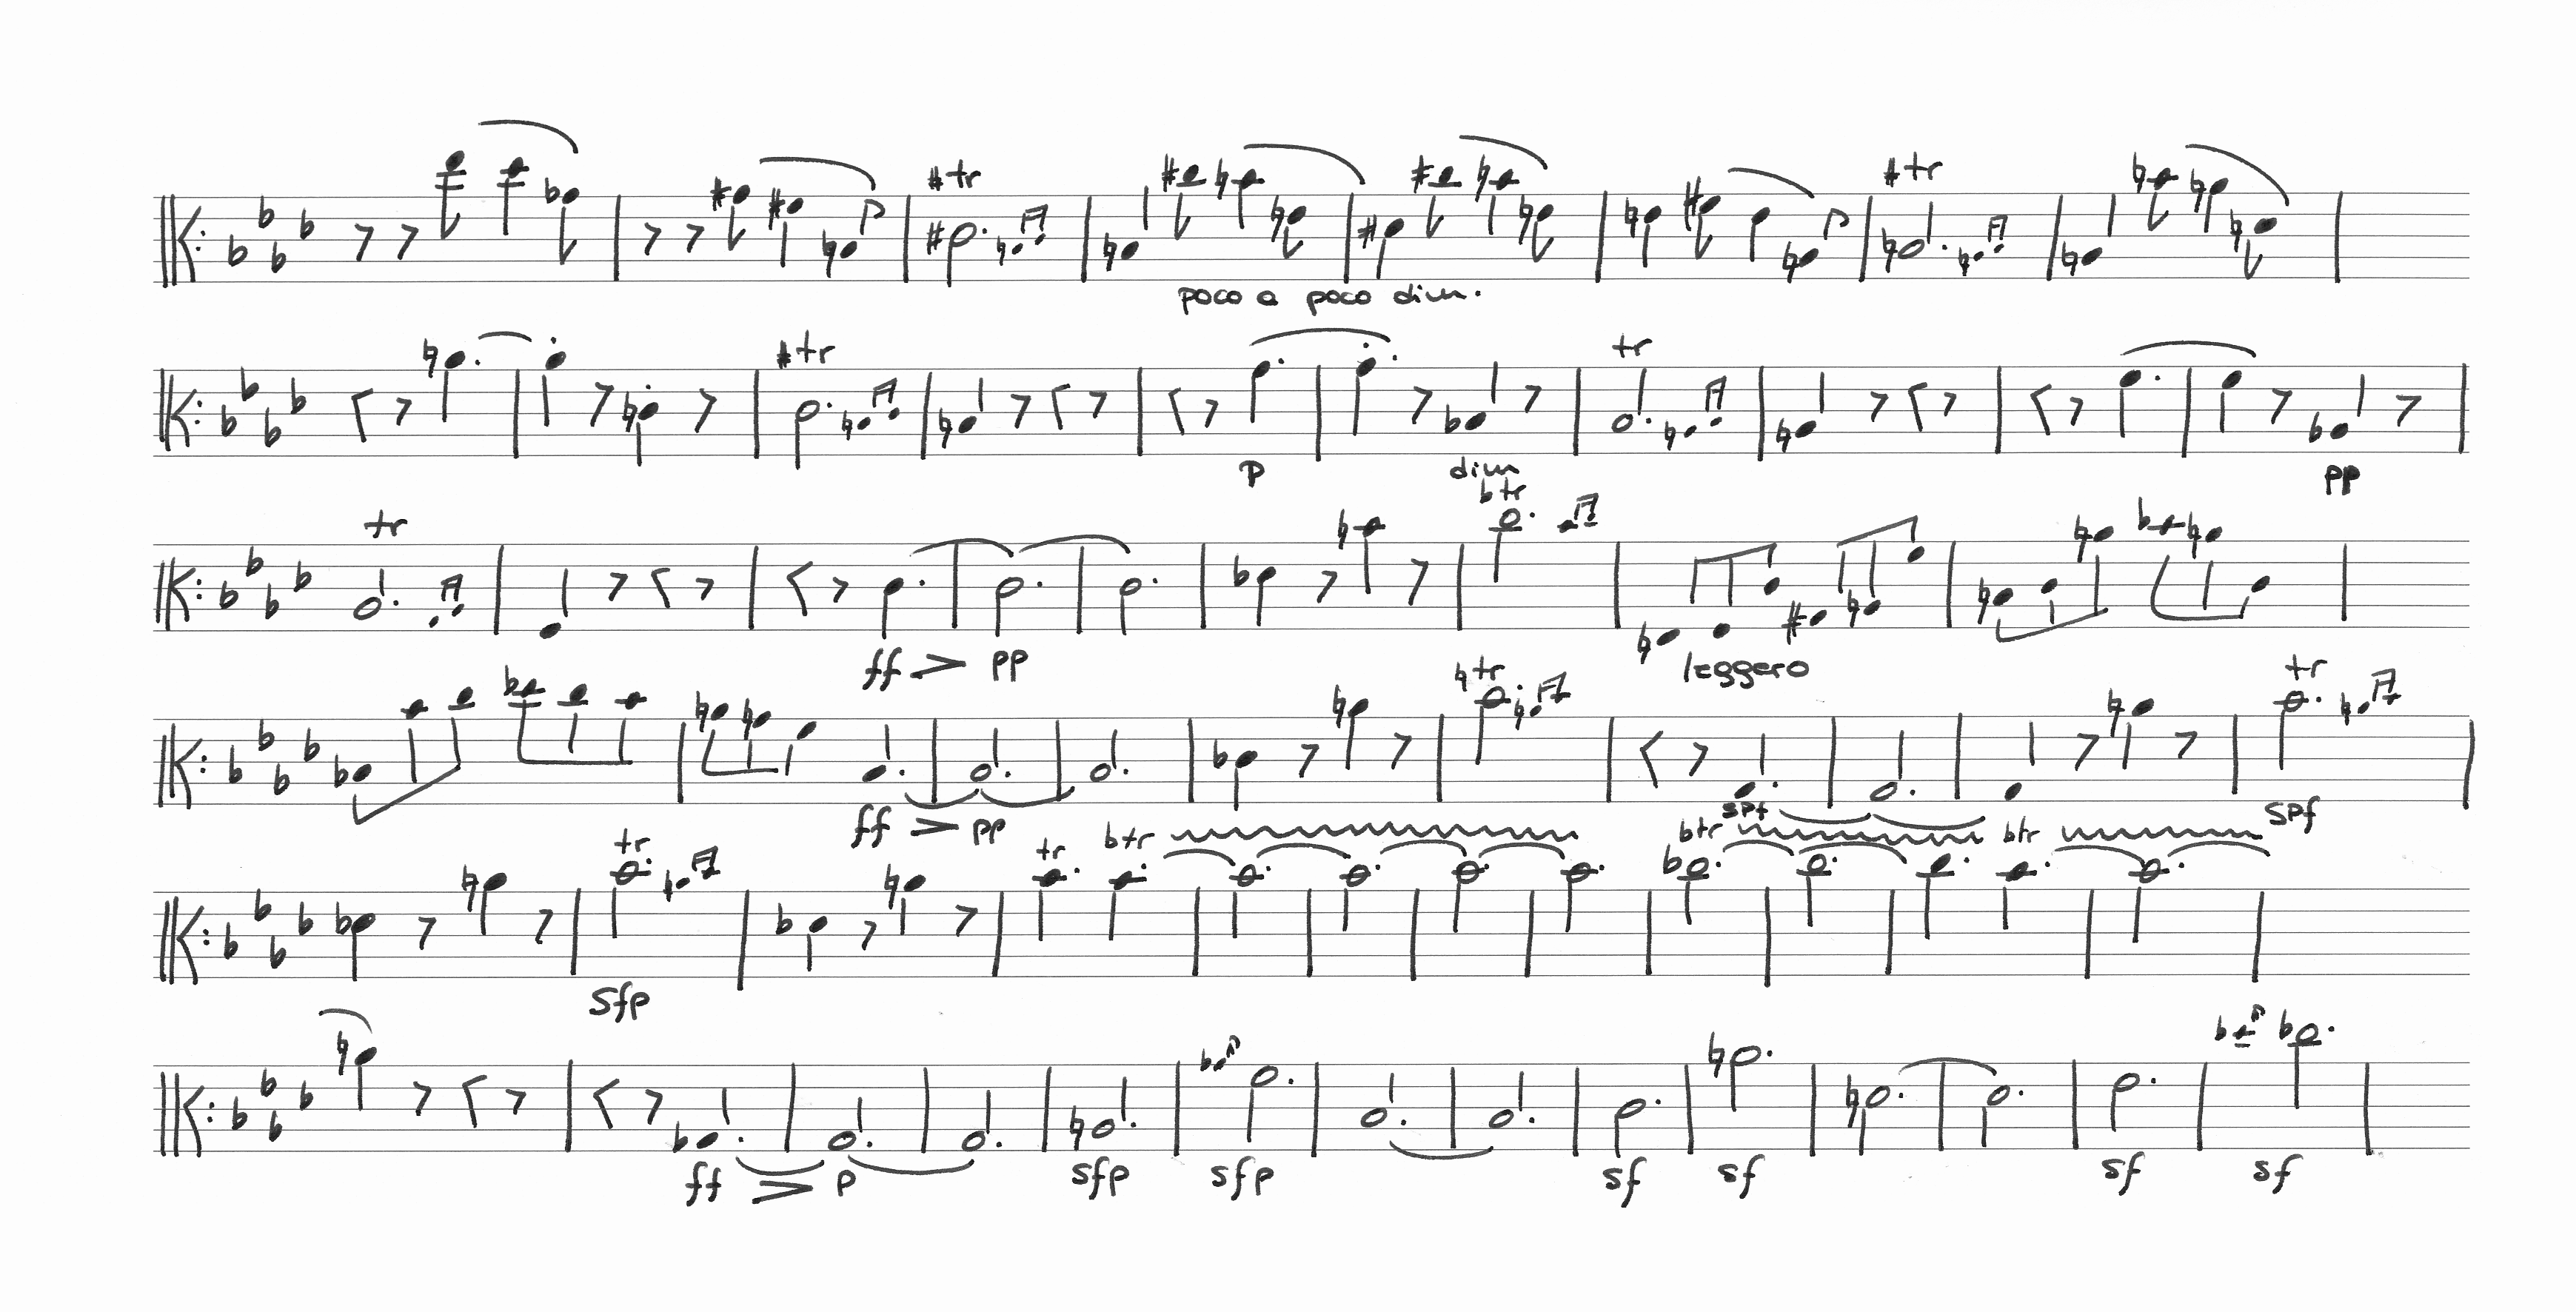 tr
poco a poco dim.
tr
tr tr
p dim pp
tr tr
ff pp leggero
tr tr
ff pp spf spf
tr tr btr btr btr
sfp
ff p sfp sfp sf sf sf sf